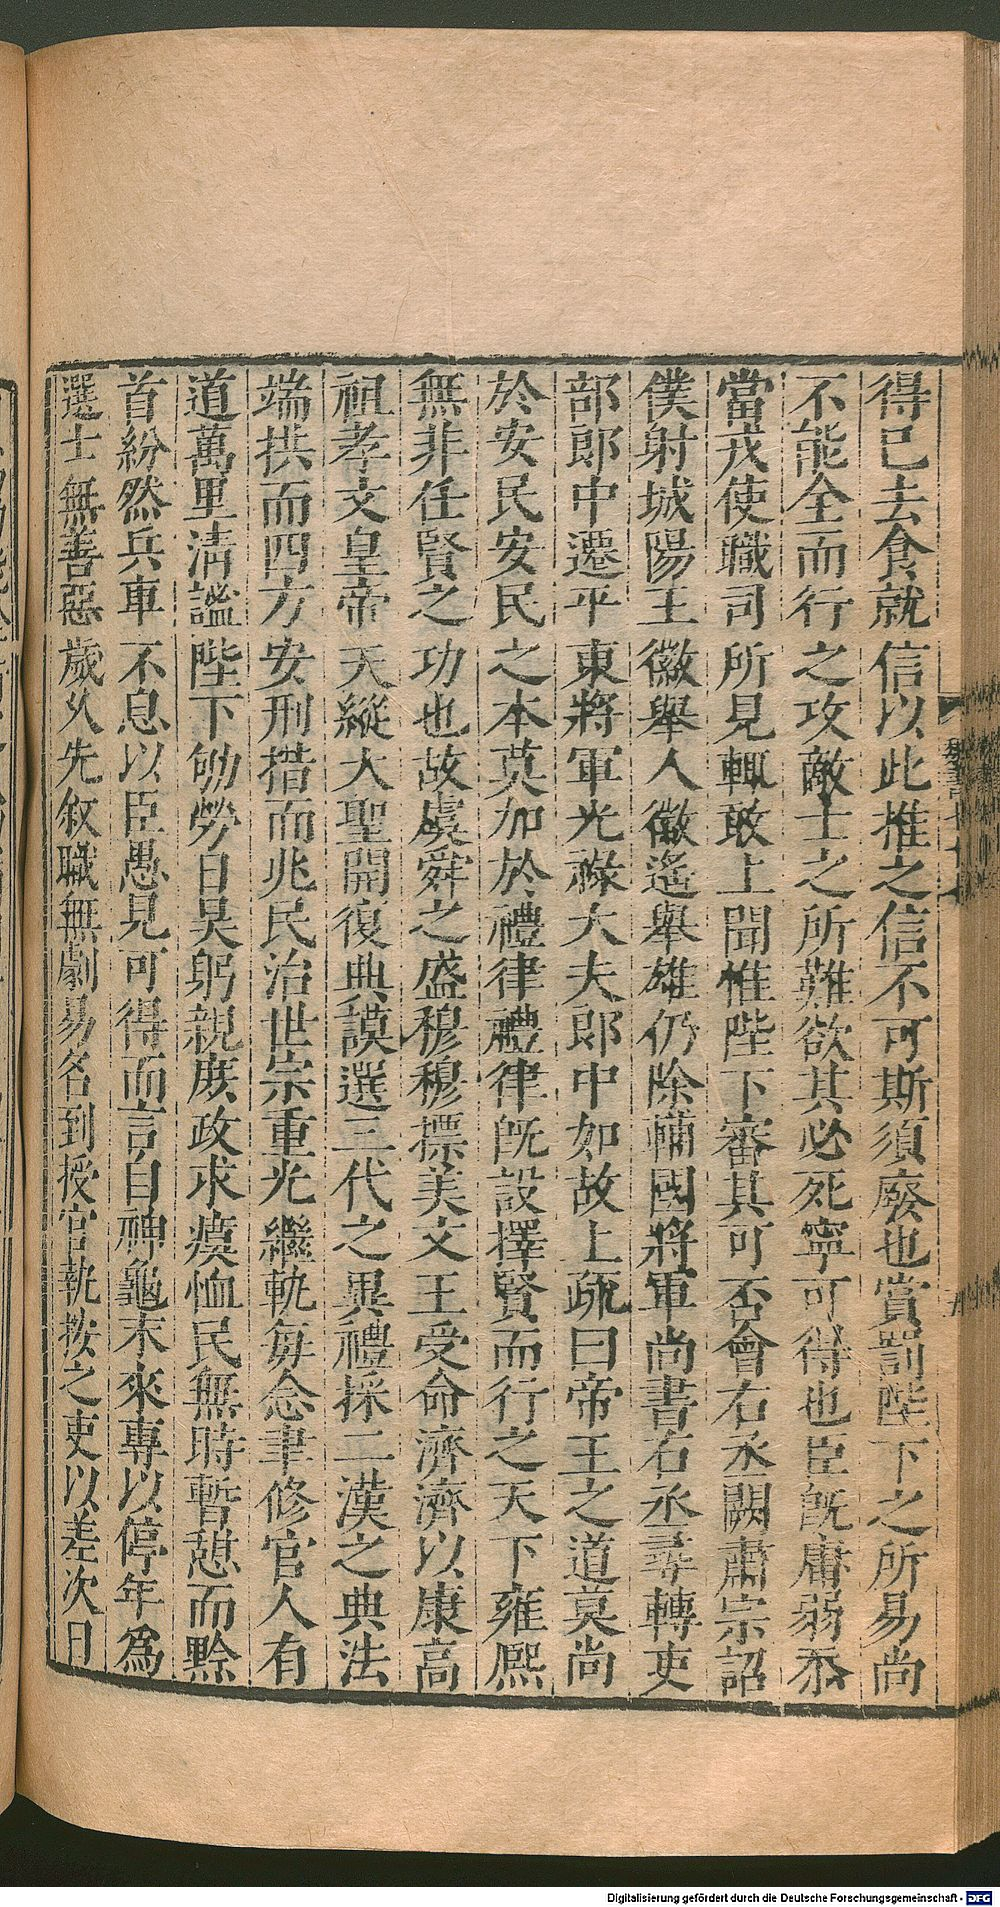 得已去食就信以此推之信不可斯須廢也賞罰陛下之所易尚
不能全而行之攻敵士之所難欲其必死寧可得也臣旣庸弱忝
當戎使職司所見輒敢上聞惟陛下審其可否會右丞闕肅宗詔
僕射城陽王徽舉人徽遙舉雄仍除輔國將軍尚書右丞尋轉吏
部郎中遷平東將軍光祿大夫郎中如故上疏曰帝王之道莫尚
於安民安民之本莫加於禮律禮律旣設擇賢而行之天下雍熙
無非任賢之功也故虞舜之盛穆穆標美文王受命濟濟以康高
祖孝文皇帝天縱大聖開復典謨選三代之異禮採二漢之典法
端拱而四方安刑措而兆民治世宗重光繼軌每念聿修官人有
道萬里清謐陛下劬勞日昃躬親庶政求瘼恤民無時暫憩而黔
首紛然兵車不息以臣愚見可得而言自神龜末來專以停年為
選士無善惡歲久先叙職無劇易名到授官執按之吏以差次日
Digitalisierung gefördert durch die Deutsche Forschungsgemeinschaft - DFG